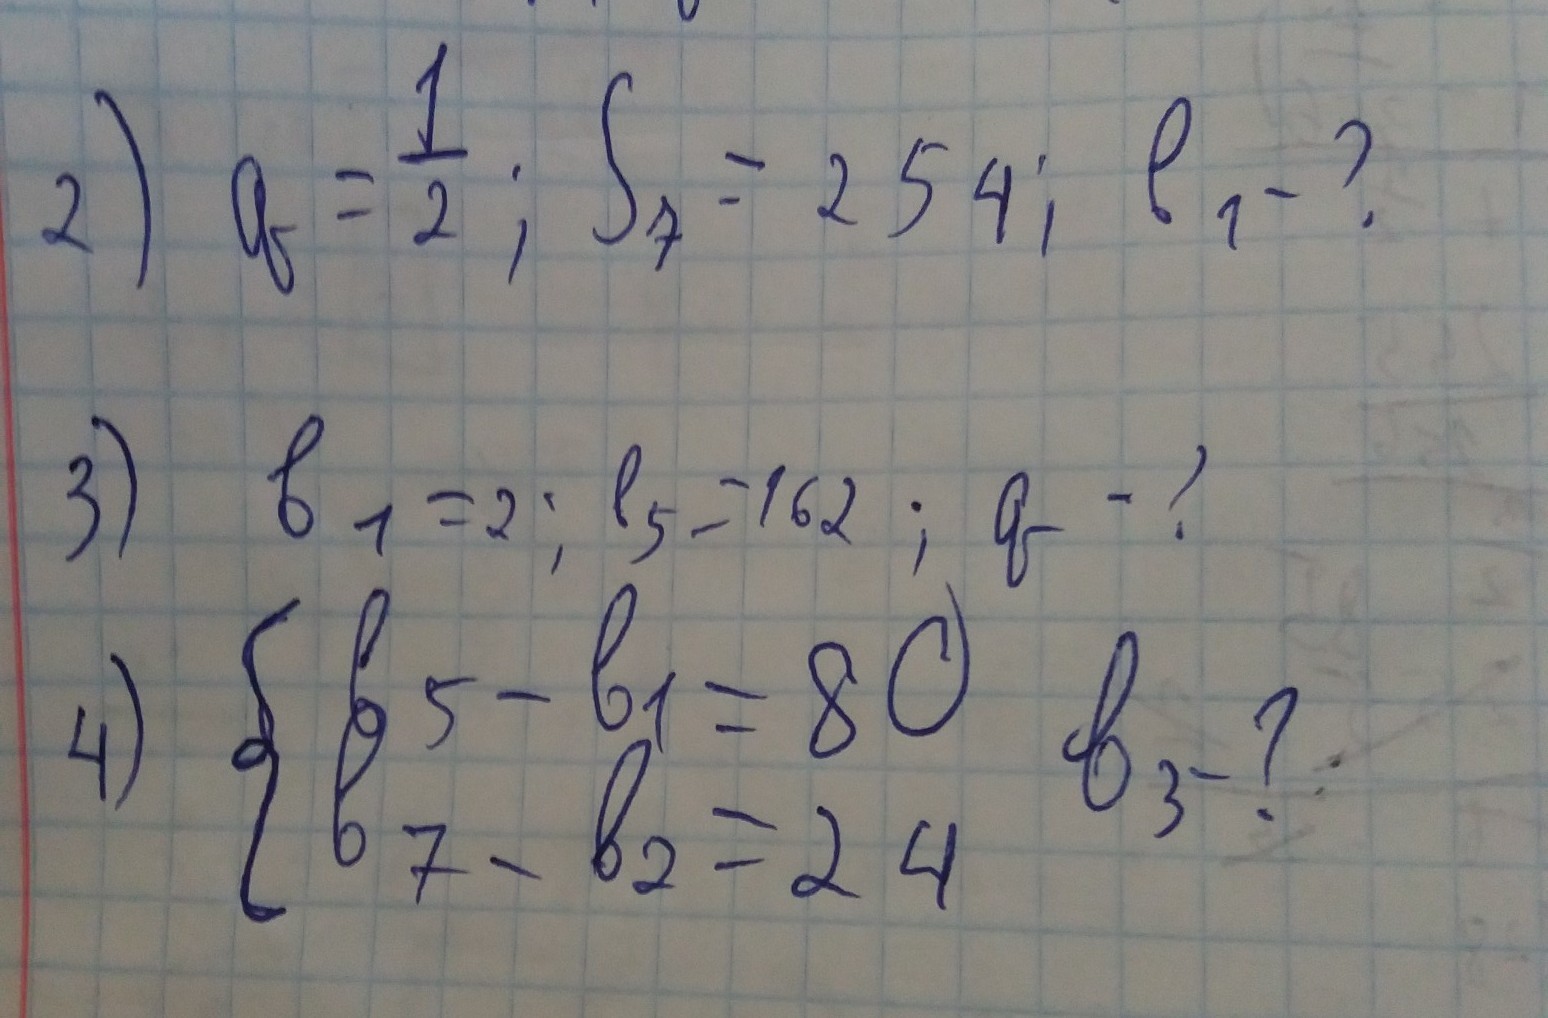 2) q = 1/2 ; S₇ = 254; b₁ - ?
3) b₁ = 2; b₅ = 162; q - ?
4) { b₅ - b₁ = 80
b₇ - b₂ = 24
b₃ - ?